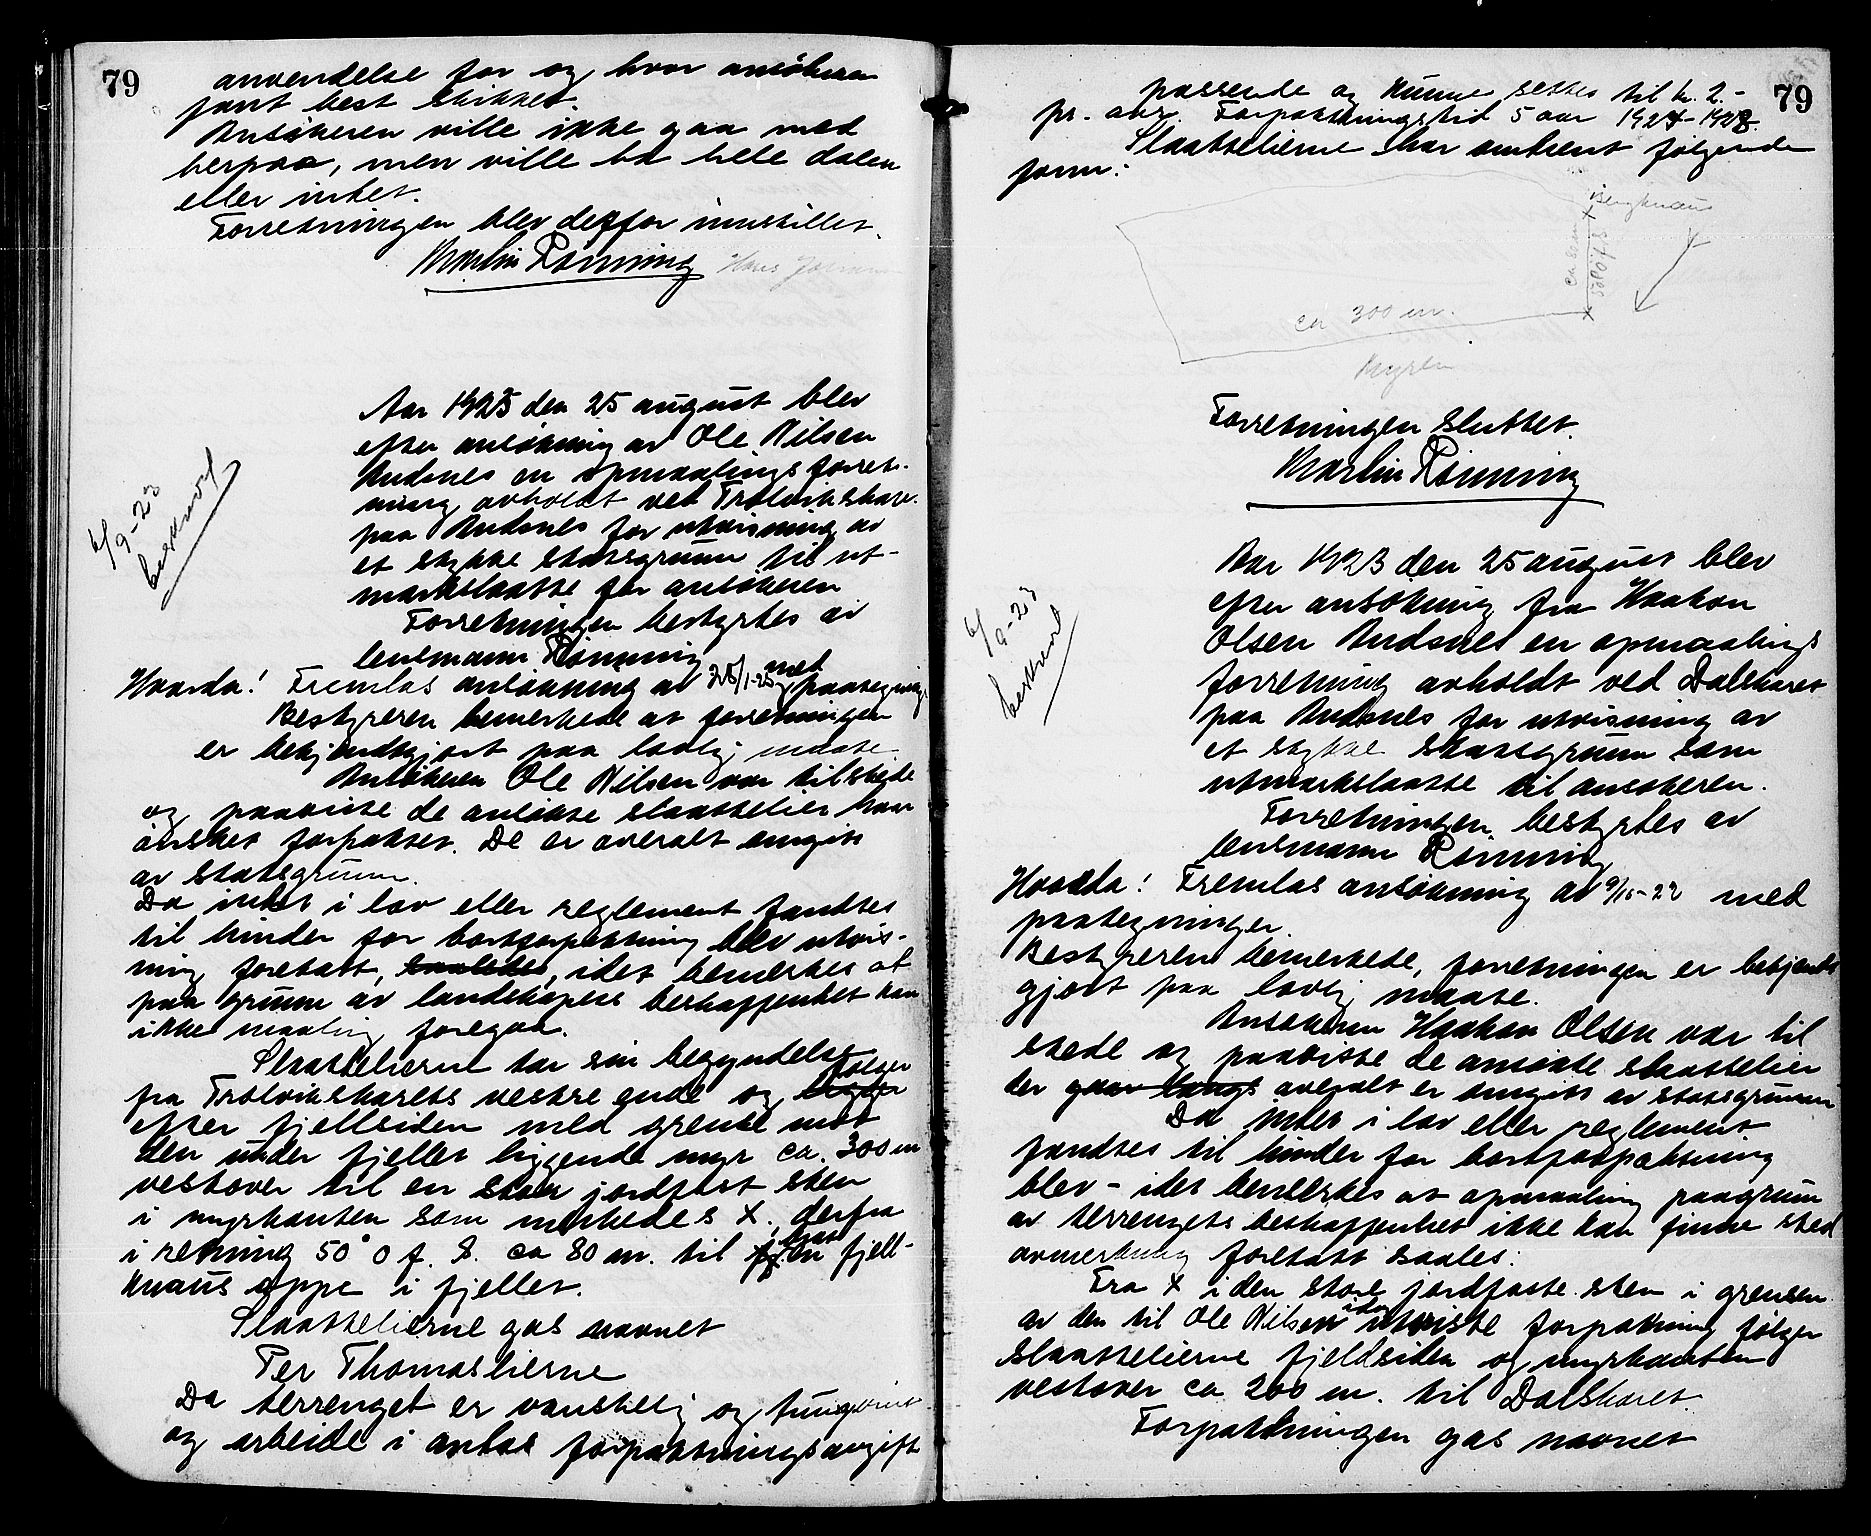 79
anvendelse for og hvor ansökeren
fant best skikket.
Ansökeren ville ikke gaa med
herpaa, men ville ha hele dalen
eller intet.
Forretningen blev derfor innstillet.
Martin Rönning Hans
Aar 1923 den 25 august blev
efter ansökning av Ole Nilsen
Andsnes en opmaalingsforret-
ning avholdt ved Trolvikskare.
paa Andsnes for utvisning av
et stykke statsgrunn til ut-
markslaatte for ansökeren
Forretningen bestyrtes av
lensmann Rönning
6/9-23
beskrevet
Hvorda! Fremlas ansökning av 28/1-23 med paategning.
Bestyreren bemerkede at forretningen
er bekjendtgjort paa lovlig maate.
Ansökeren Ole Nilsen var tilstede
og paaviste de ansökte slaattelier han
önsket forpaktet. De er overalt omgitt
av statsgrunn.
Da intet i lov eller reglement fandtes
til hinder for bortforpaktning blev utvis-
ning foretatt, saaledes, idet bemerkes at
paa grunn av landskapets beskaffenhet kan
ikke maaling foregaa.
Slaattelierne tar sin begyndelse
fra Trolvikskarets vestre ende og ligger følger
efter fjellsiden med grense mot
den under fjellet liggende myr ca. 300 m
vestover til en stor jordfast sten
i myrkanten som merkedes X. derfra
i retning 50° O f. S. ca 80 m. til en fjell-
knaus oppe i fjellet.
Slaattelierne gas navnet
Per Thomaslierne
Da terrenget er vanskelig og tungvint
og arbeide i antas forpaktningsavgift
79
passende og kunne settes til kr. 2.-
pr. aar. Forpaktningstid 5 aar 1924-1928.
Slaattelierne har omtrent følgende
form:
Bergknaus
ca 80 m
50° O f. S
ca 300 m.
Myren
Forretningen sluttet.
Martin Rönning
Aar 1923 den 25 august blev
efter ansökning fra Haakon
Olsen Andsnes en opmaalings
forretning avholdt ved Dalskaret
paa Andsnes for utvisning av
et stykke statsgrunn som
utmarkslaatte til ansökeren.
Forretningen bestyrtes av
lensmann Rönning
6/9-23
beskrevet
Hvorda! Fremlas ansökning av 9/10-22 med
paategninger.
Bestyreren bemerkede, forretningen er bekjendt
gjort paa lovlig maate.
Ansökeren Haakon Olsen var til
stede og paaviste de ansökte slaattelier
der gaar langs overalt er omgitt av statsgrunn
Da intet i lov eller reglement
fandtes til hinder for bortforpaktning
blev - idet bemerkes at opmaaling paagrunn
av terrengets beskaffenhet ikke kan finne sted
avmerkning foretatt saales:
Fra X i den store jordfaste sten i grensen
av den til Ole Nilsen idag utviste forpaktning følger
slaattelierne fjeldsiden og myrkanten
vestover ca 200 m. til Dalskaret.
Forpaktningen gas navnet